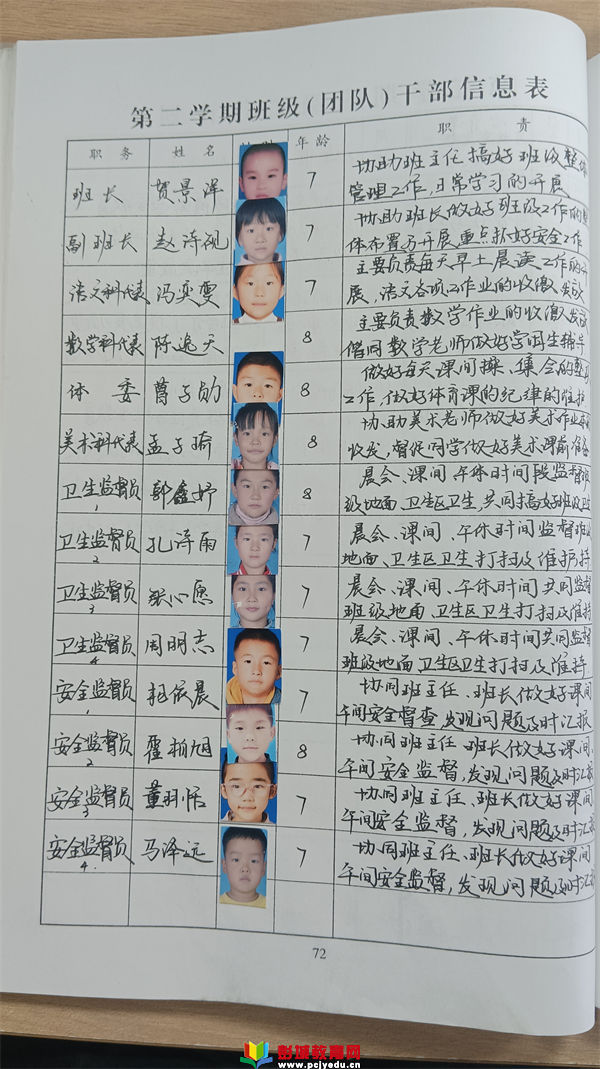 第二学期班级(团队)干部信息表
职务 姓名 年龄 职责
班长 贺景泽 7 协助班主任搞好班级整体
管理工作,日常学习的开展
副班长 赵诗砚 7 协助班长做好班级工作的
体布置与开展,重点抓好安全工作
语文科代表 冯奕雯 7 主要负责每天早上晨读工作的开
展,语文各项工作业的收缴、发放
数学科代表 陈逸天 8 主要负责数学作业的收缴、发放
偕同数学老师做好学困生辅导
体委 曹子勋 8 做好每天课间操、集会的整队
工作,做好体育课的纪律的维护
美术科代表 孟子瑜 8 协助美术老师做好美术作业
收发,督促同学做好美术课前准备
卫生监督员1 郭鑫妤 8 晨会、课间、午休时间段监督
级地面、卫生区卫生,共同搞好班级卫生
卫生监督员2 孔诗雨 7 晨会、课间、午休时间监督班级
地面、卫生区卫生打扫及维护持
卫生监督员3 张心愿 7 晨会、课间、午休时间共同监督
班级地面、卫生区卫生打扫及维持
卫生监督员4 周明志 7 晨会、课间、午休时间共同监督
班级地面卫生区卫生打扫及维持
安全监督员1 依晨 7 协同班主任、班长做好课间
午间安全督查,发现问题及时汇报
安全监督员2 霍柏旭 8 协同班主任、班长做好课间、
午间安全监督,发现问题及时汇报
安全监督员3 董羽恬 7 协同班主任、班长做好课间
午间安全监督,发现问题及时汇报
安全监督员4 马泽远 7 协同班主任、班长做好课间
午间安全监督,发现问题及时汇报
72
彭城教育网
www.pcjyedu.cn